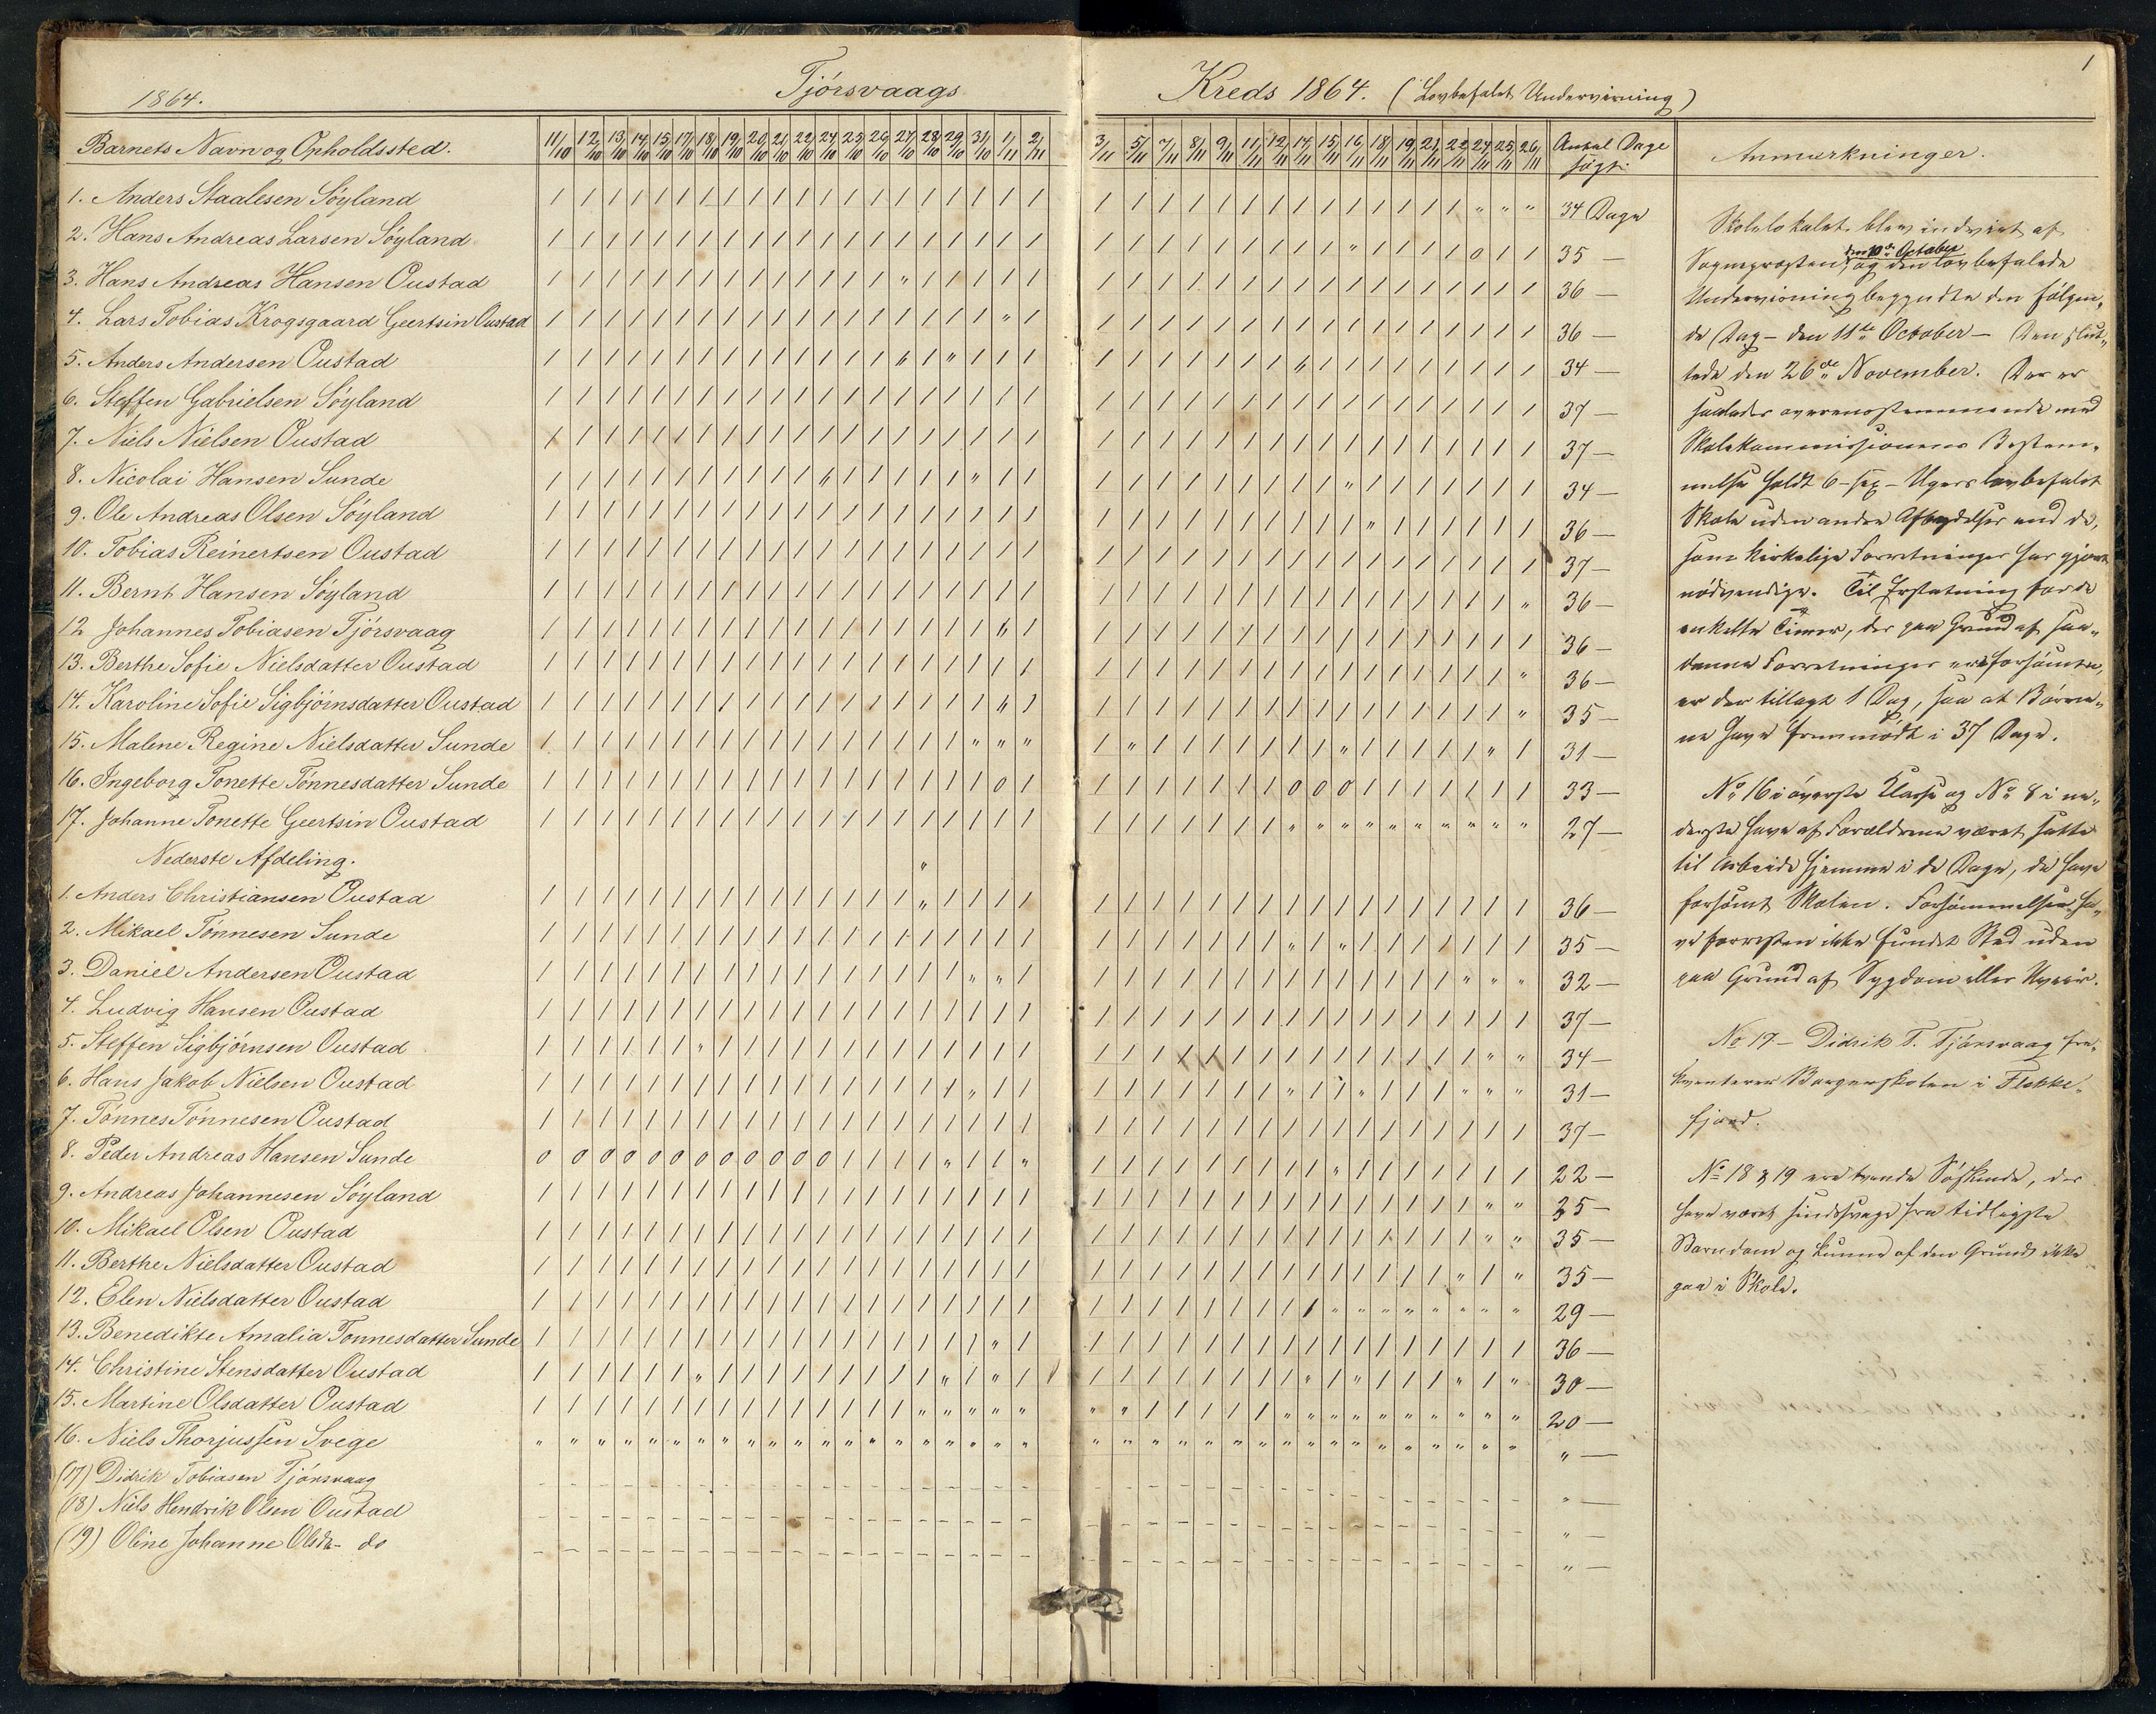 1
1864. Tjörsvaags Kreds 1864. (Lovbefalet Undervisning)
Barnets Navn og Opholdssted. 11/10 12/10 13/10 14/10 15/10 17/10 18/10 19/10 20/10 21/10 22/10 24/10 25/10 26/10 27/10 28/10 29/10 31/10 1/11 2/11 3/11 5/11 7/11 8/11 9/11 11/11 12/11 14/11 15/11 16/11 18/11 19/11 21/11 22/11 24/11 25/11 26/11 Antal Dage søgt Anmærkninger.
1. Anders Staalesen Söyland 34 Dage
2. Hans Andreas Larsen Söyland 35 —
3. Hans Andreas Hansen Oustad 36 —
4. Lars Tobias Krogsgaard Geertsin Oustad 36 —
5. Anders Andersen Oustad 34 —
6. Steffen Gabrielsen Söyland 37 —
7. Niels Nielsen Oustad 37 —
8. Nicolai Hansen Sunde 34 —
9. Ole Andreas Olsen Söyland 36 —
10. Tobias Reinertsen Oustad 37 —
11. Bernt Hansen Söyland 36 —
12 Johannes Tobiasen Tjörsvaag 36 —
13. Berthe Sofie Nielsdatter Oustad 36 —
14. Karoline Sofie Sigbjörnsdatter Oustad 35 —
15. Malene Regine Nielsdatter Sunde 31 —
16. Ingeborg Tonette Tönnesdatter Sunde 33 —
17. Johanne Tonette Geertsin Oustad 27 —
Nederste Afdeling.
1. Anders Christiansen Oustad 36 —
2. Mikael Tönnesen Sunde 35 —
3. Daniel Andersen Oustad 32 —
4. Ludvig Hansen Oustad 37 —
5. Steffen Sigbjörnsen Oustad 34 —
6. Hans Jakob Nielsen Oustad 31 —
7. Tönnes Tönnesen Oustad 37 —
8. Peder Andreas Hansen Sunde 22 —
9. Andreas Johannesen Söyland 35 —
10. Mikael Olsen Oustad 35 —
11. Berthe Nielsdatter Oustad 35 —
12. Elen Nielsdatter Oustad 29 —
13. Benedikte Amalia Tonnesdatter Sunde 36 —
14. Christine Stensdatter Oustad 30 —
15. Martine Olsdatter Oustad 20 —
16. Niels Thorjussen Svege " —
(17) Didrik Tobiasen Tjörsvaag " —
(18) Niels Hendrik Olsen Oustad " —
(19) Oline Johanne Olsdr do " —
Skolelokalet blev indviet af
Sogneprosten den 10de October og den lovbefalede
Undervisning begyndte den følgen-
de Dag – den 11te October – Den slut-
tede den 26de November. Der er
saaledes overensstemmende med
Skolekommissionens Bestem-
melse holdt 6 – sex – Ugers lovbefalet
Skole uden andre Afbrydelser end de,
som kirkelige Forretninger har gjort
nødvendige. Til Erstatning for de
enkelte Timer, der paa Grund af saa-
danne Forretninger ere forsømte,
er der tillagt 1 Dag, saa at Børne-
ne have fremmødt i 37 Dage.
No 16 i øverste Klasse og No 8 i ne-
derste have af Forældrene været satte
til Arbeide hjemme i de Dage, de have
forsømt Skolen. Forsømmelser ha-
ve forresten ikke fundet Sted uden
paa Grund af Sygdom eller Uveir.
No 17 – Didrik T. Tjörsvaag fre-
kventerer Borgerskolen i Flekke-
fjord.
No 18 & 19 ere tvende Søskende, der
have været sindssvage fra tidligste
Barndom og kunne af den Grund ikke
gaa i Skole.